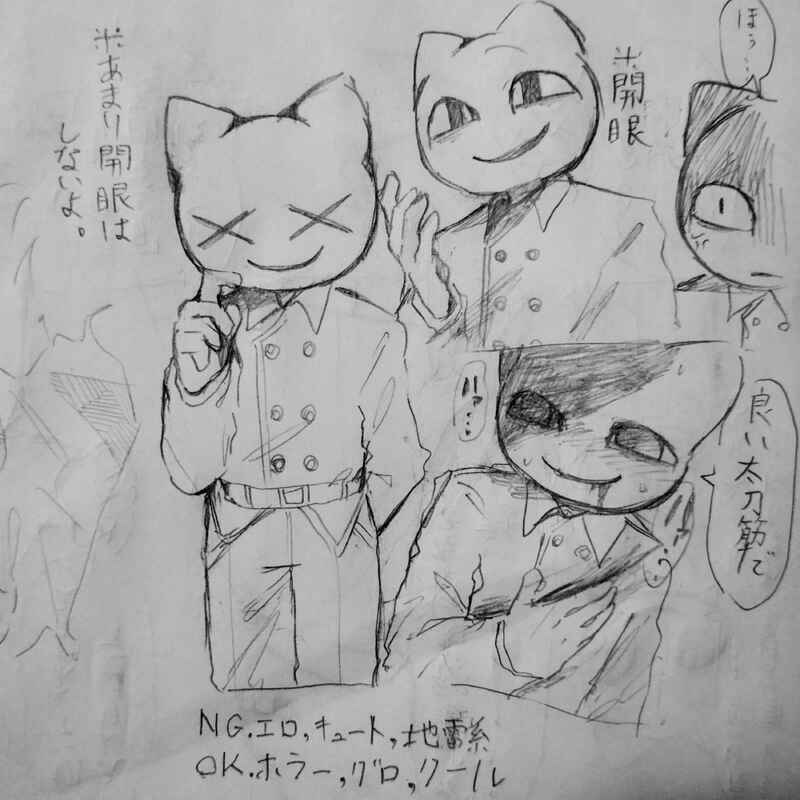 ※あまり開眼は
しないよ。
※開眼
ほぅ…
ハァ…
良い太刀筋で
NG.エロ,キュート,地雷系
OK.ホラー,グロ,クール